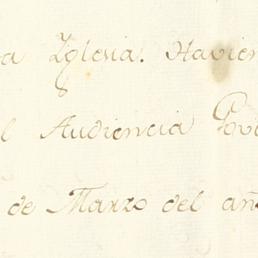 a Yglesia. Havien
l Audiencia Povi
de Marzo del añ